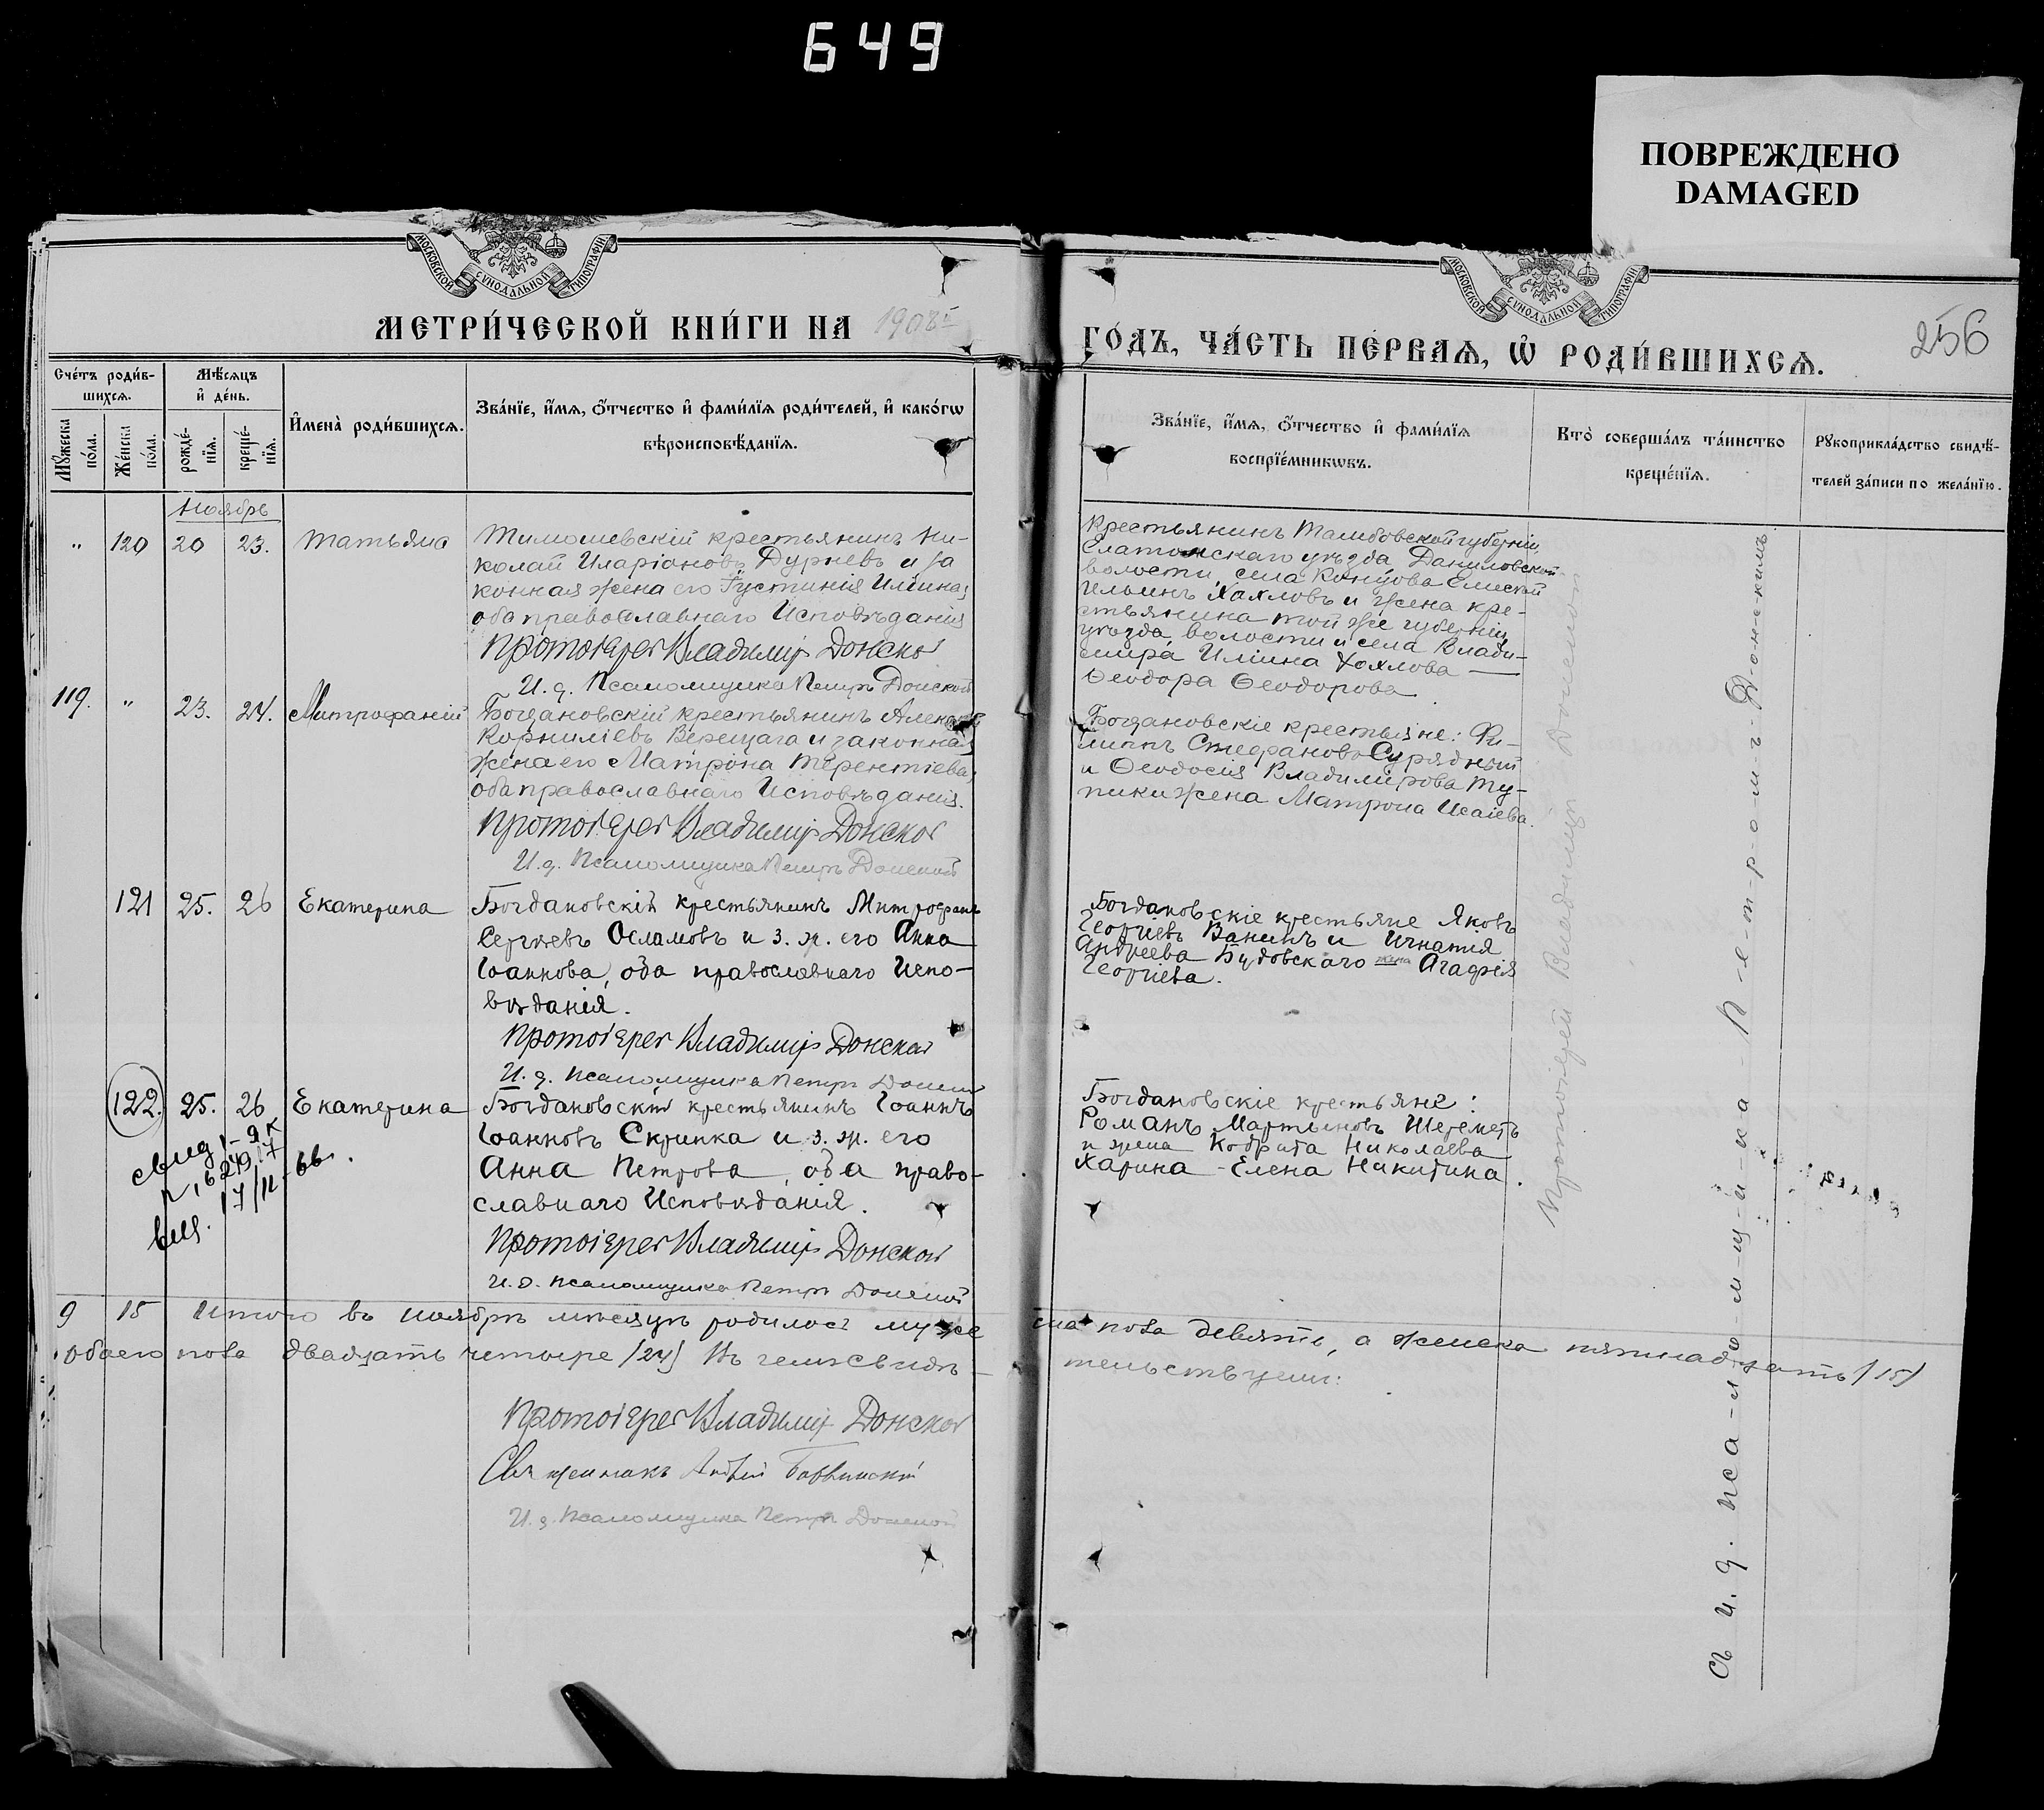 649
ПОВРЕЖДЕНО
DAMAGED
МОСКОВСКОЙ СѴНОДАЛЬНОЙ ТИПОГРАФІИ
МОСКОВСКОЙ СѴНОДАЛЬНОЙ ТИПОГРАФІИ
МЕТРИ́ЧЕСКОЙ КНИ́ГИ НА 1908
ГО́ДЪ, ЧА́СТЬ ПЕ́РВАЯ, Ѡ҆ РОДИ́ВШИХСЯ.
256
Сче́тъ роди́в-
шихся.
Мѣ́сяцъ
и҆ де́нь.
Мꙋ́жеска
по́ла.
Же́нска
по́ла.
рожде́-
нїя.
креще́-
нїя.
И҆мена̀ роди́вшихся.
Зва́нїе, и҆́мя, ѻ҆́тчество и҆ фами́лїя роди́телей, и҆ како́гѡ
вѣроисповѣ́данїя.
Зва́нїе, и҆́мя, ѻ҆́тчество и҆ фами́лїя
воспрїе́мникѡвъ.
Кто̀ соверша́лъ та́инство
креще́нїя.
Рꙋкоприкла́дство свидѣ́-
телей за́писи по жела́нїю.
Ноябрь
„ 120 20 23. Татьяна
Тимошевскій крестьянинъ Ни-
колай Иларіановъ Дурневъ и за
конная жена его Іустинія Иліина,
оба православнаго Исповѣданія
Протоіерей Владиміръ Донской
И. д. Псаломщика Петръ Донской
Крестьянинъ Тамбовской губерніи,
Елатомскаго уѣзда Даниловской
волости, села
Ильинъ Хахловъ и жена кре-
стьянина той же губерніи,
уѣзда, волости и села Влади-
мира Иліина Хохлова —
Ѳеодора Ѳеодорова
119. „ 23. 24. Митрофаній
Богдановскій крестьянинъ
Корниліевъ Верещага и законная
жена его Матрона Терентіева,
оба православнаго Исповѣданія.
Протоіерей Владиміръ Донской
И. д. Псаломщика Петръ Донской
Богдановскіе крестьяне: Фи-
липпъ Стефановъ Сурядный
и Ѳеодосія Владимірова Ту-
пики жена Матрона Исаіева.
121 25. 26 Екатерина
Богдановскій крестьянинъ Митрофанъ
Сергѣевъ Осламовъ и з. ж. его Анна
Іоаннова, оба православнаго Испо-
вѣданія.
Протоіерей Владиміръ Донской
И. д. Псаломщика Петръ Донской
Богдановскіе крестьяне Яковъ
Георгіевъ Ванинъ и Игнатія
Андреева Будовскаго жена Агафія
Георгіева.
122. 25. 26 Екатерина
Богдановскій крестьянинъ Іоаннъ
Іоанновъ Скрипка и з. ж. его
Анна Петрова, оба право-
славнаго Исповѣданія.
Протоіерей Владиміръ Донской
И. д. Псаломщика Петръ Донской
Богдановскіе крестьяне:
Романъ Мартыновъ Шереметъ
и жена Кодрата Николаева
Харина - Елена Никитина.
свид
17/II-66.
Протоіерей Владиміръ Донской
Съ и. д. пса-ло-м-щ-и-ка - П-е-т-р-о-м-ъ Донскимъ
9 15 Итого въ ноябрѣ мѣсяцѣ родилось муже ска пола девять, а женска пятнадцать (15)
обаего пола двадцать четыре (24) Въ чемъ свидѣ- тельствуемъ:
Протоіерей Владиміръ Донской
Священникъ
И. д. Псаломщика Петръ Донской